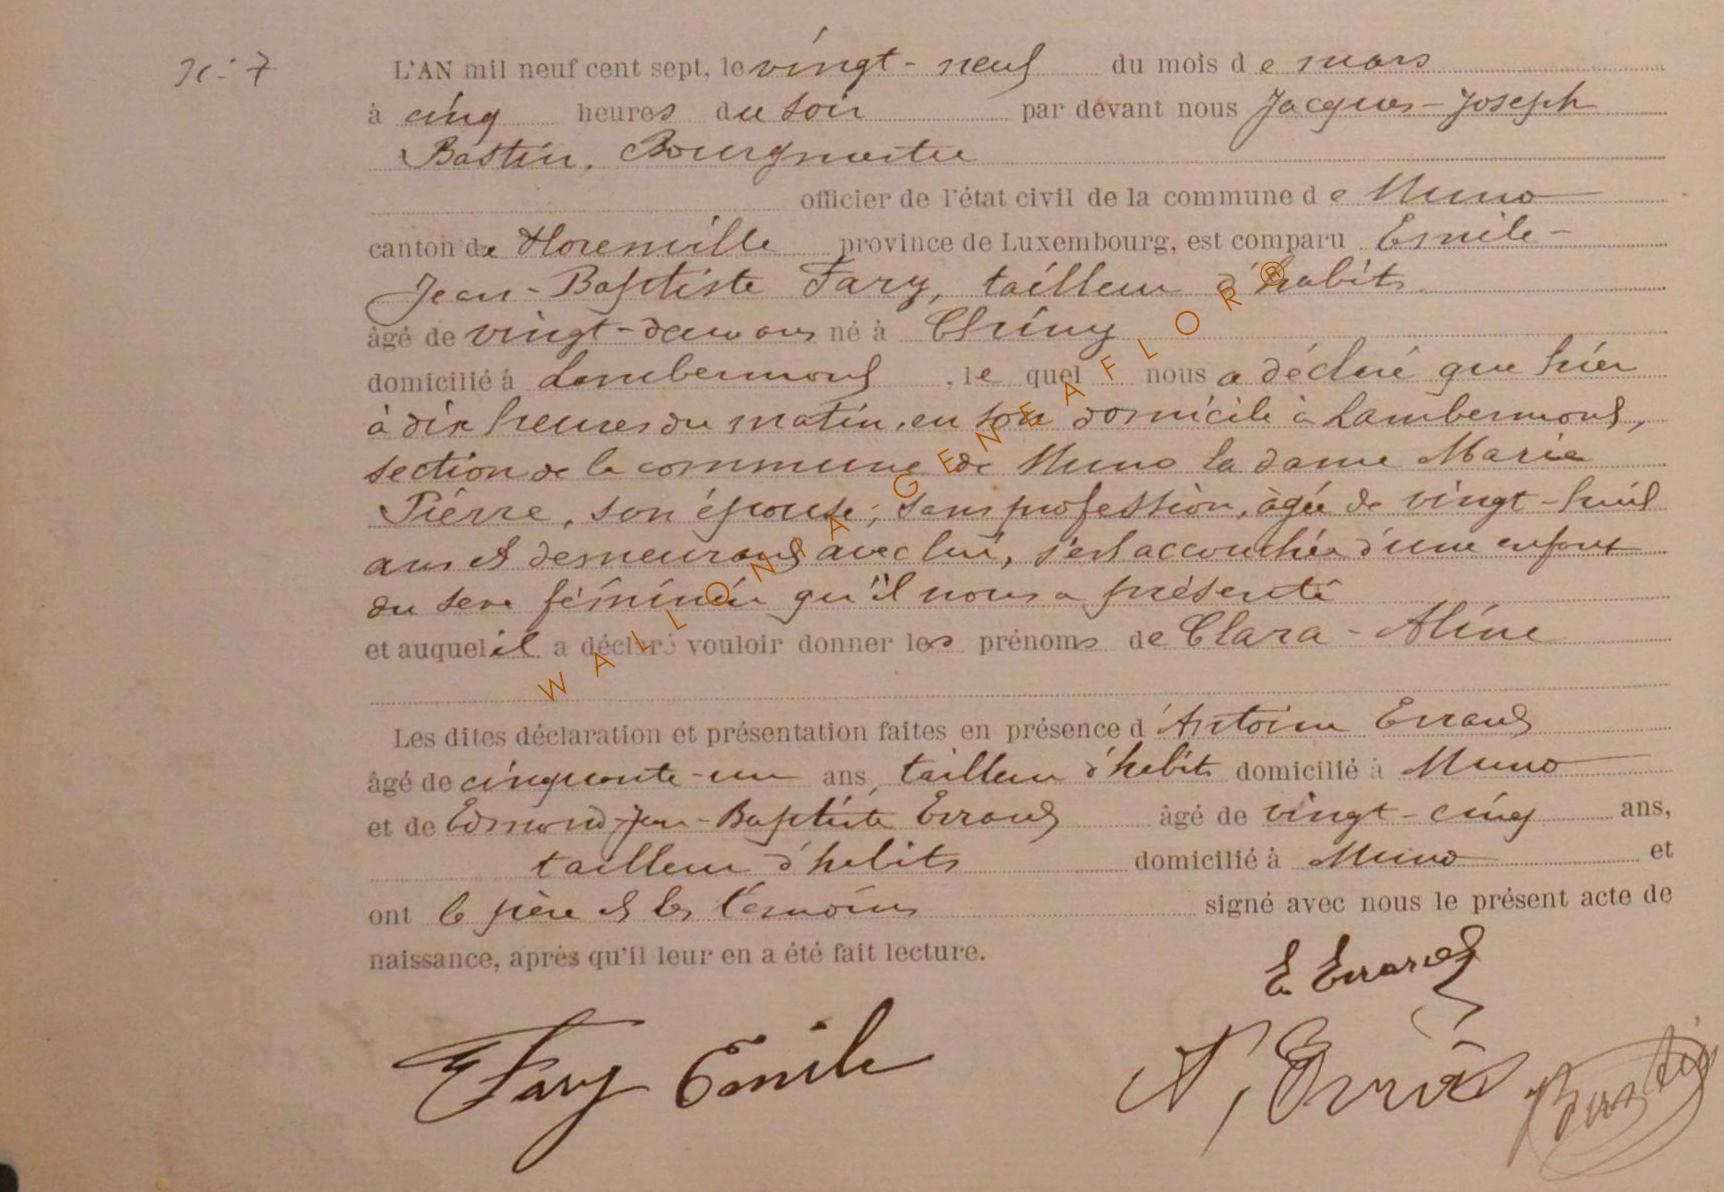 N: 7
L'AN mil neuf cent sept, le vingt-neuf du mois de mars
à cinq heures du soir par devant nous Jacques-Joseph
Bastin, Bourgmestre
officier de l'état civil de la commune de Muno
canton de Florenville province de Luxembourg, est comparu Emile-
Jean-Baptiste Fary, tailleur d'habits
âgé de vingt-deux ans né à Chiny
domicilié à Lambermont, le quel nous a déclaré que hier
à dix heures du matin, en son domicile à Lambermont,
section de la commune de Muno la dame Marie
Pierre, son épouse, sans profession, âgée de vingt-huit
ans et demeurant avec lui, s'est accouchée d'une enfant
du sexe féminin qu'il nous a présenté
et auquel il a déclaré vouloir donner les prénoms de Clara-Aline
Les dites déclaration et présentation faites en présence d'Antoine Errard
âgé de cinquante-un ans, tailleur d'habits domicilié à Muno
et de Edmond-Jean-Baptiste Errard âgé de vingt-cinq ans,
tailleur d'habits domicilié à Muno et
ont le père et les témoins signé avec nous le présent acte de
naissance, après qu'il leur en a été fait lecture.
E Errard
Fary Emile
A, Errard
Bastin
WALLONIA-GENEAFLOR®